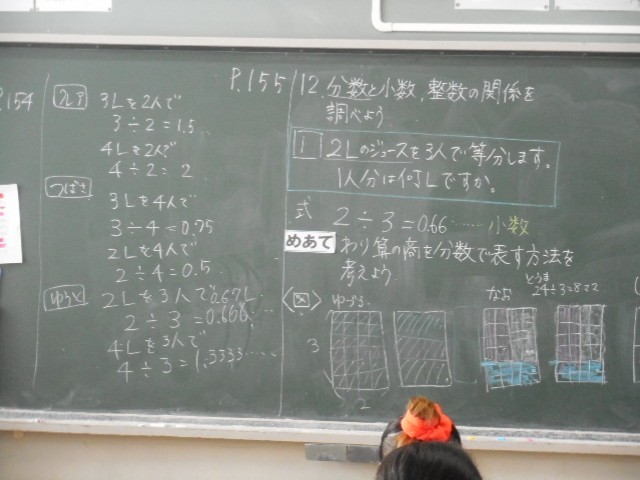 P.154
3Lを2人で
3÷2=1.5
4Lを2人で
4÷2=2
つばさ
3Lを4人で
3÷4=0.75
2Lを4人で
2÷4=0.5
ゆうと
2Lを3人で0.67L
2÷3=0.666…
4Lを3人で
4÷3=1.3333……
P.155
12.分数と小数、整数の関係を
調べよう
1 2Lのジュースを3人で等分します。
1人分は何Lですか。
式 2÷3=0.66…… 小数
めあて わり算の商を分数で表す方法を
考えよう
〈図〉
3
2
24÷3=8マス